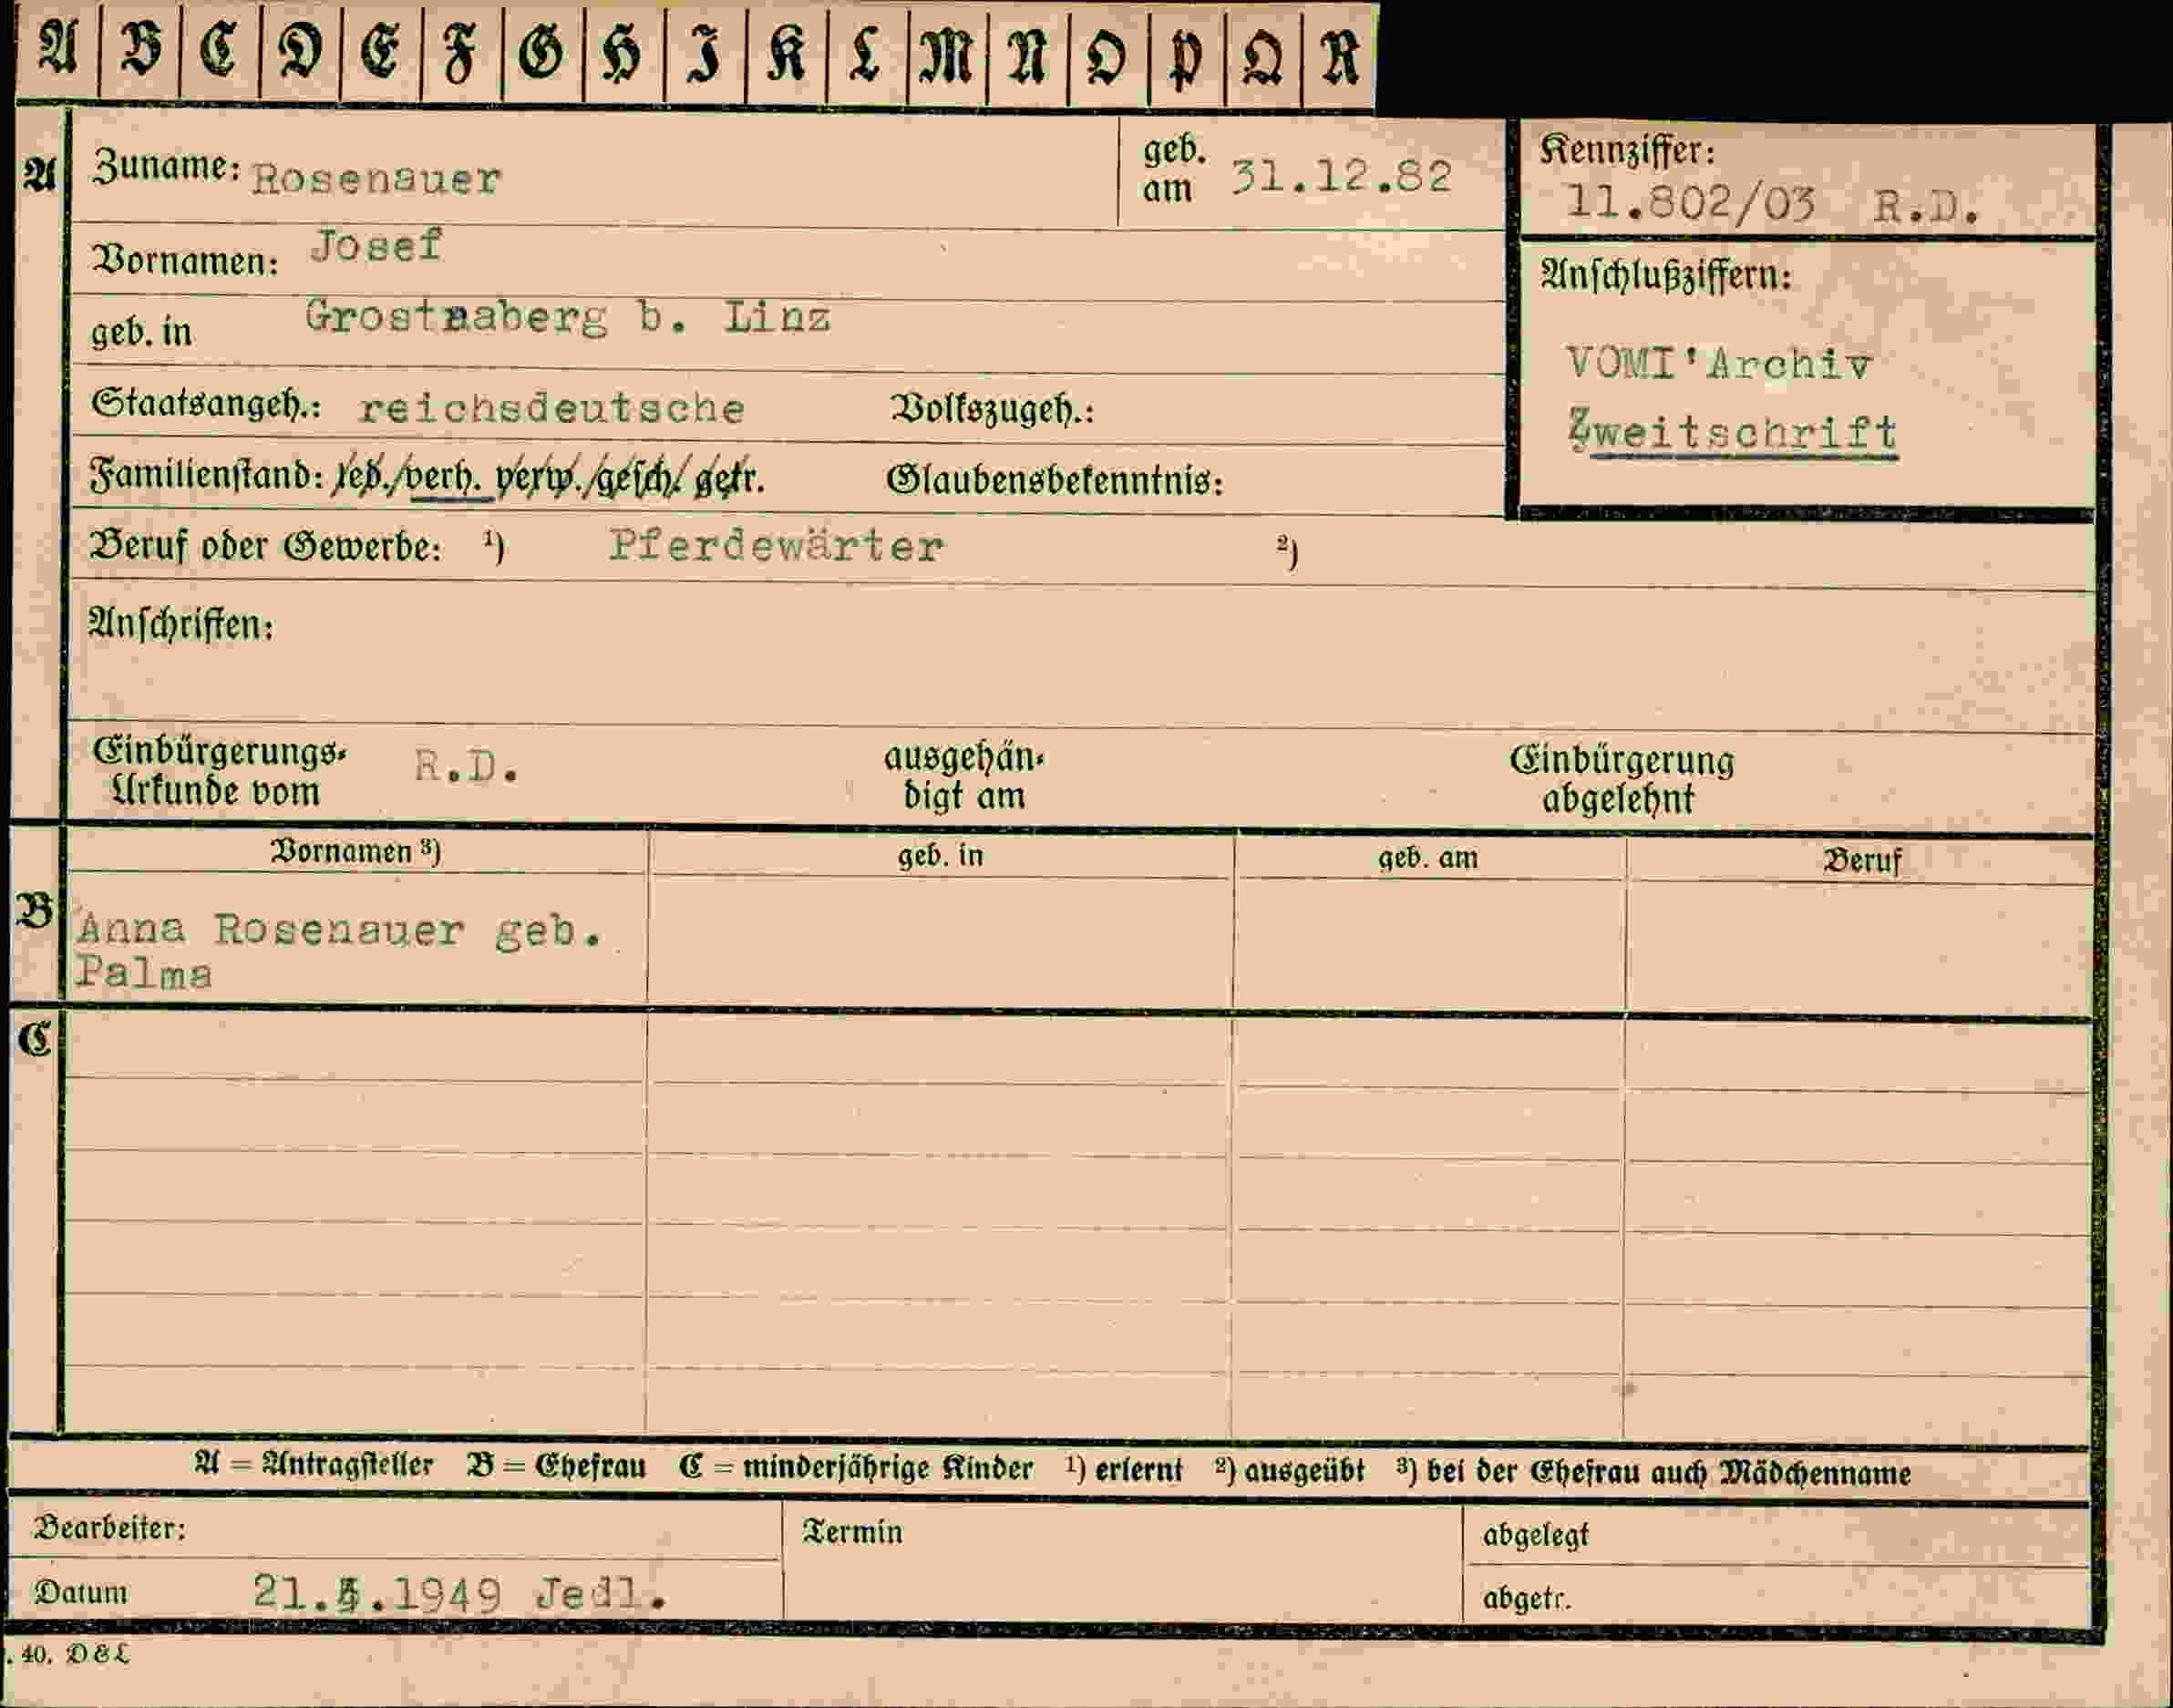 A B C D E F G H I K L M N O P Q R
A Zuname: Rosenauer geb. am 31.12.82
Kennziffer:
11.802/03 R.D.
Vornamen: Josef
geb. in b. Linz
Anschlußziffern:
VOMI'Archiv
Zweitschrift
Staatsangeh.: reichsdeutsche Volkszugeh.:
Familienstand: led./verh. verw./gesch/ getr. Glaubensbekenntnis:
Beruf oder Gewerbe: ¹) Pferdewärter ²)
Anschriften:
Einbürgerungs- R.D. ausgehän- Einbürgerung
Urkunde vom digt am abgelehnt
Vornamen ³) geb. in geb. am Beruf
B Anna Rosenauer geb.
Palma
C
A = Antragsteller B = Ehefrau C = minderjährige Kinder ¹) erlernt ²) ausgeübt ³) bei der Ehefrau auch Mädchenname
Bearbeiter: Termin abgelegt
Datum 1949 Jedl. abgetr.
. 40. D & L